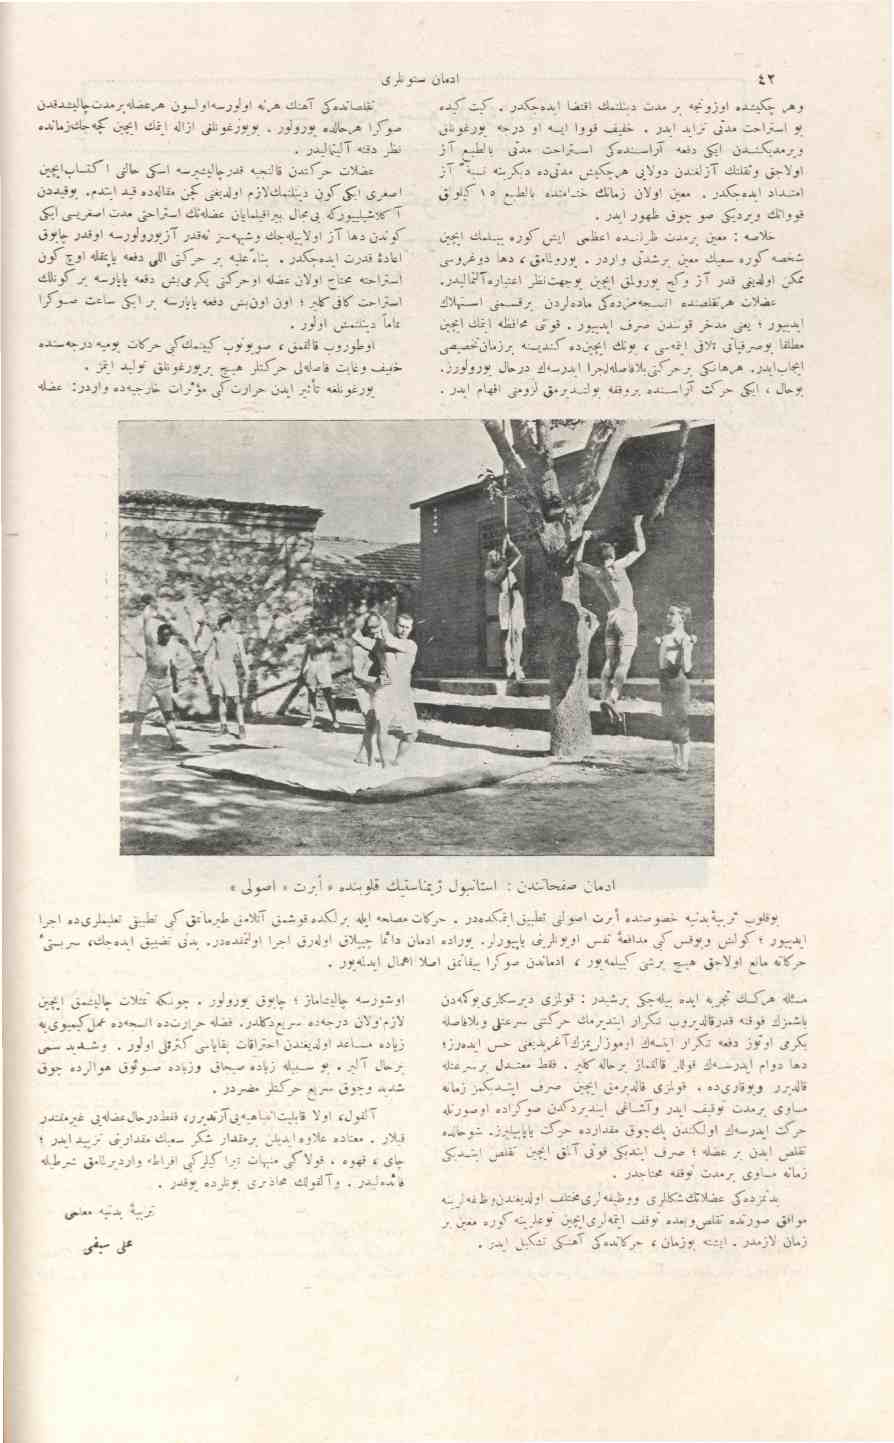 ٤٢
ادمان ستونلری
وهر چکیشده اوزونجه بر مدت دیکلنمك اقتضا ایده‌جکدر . کیت کیده
بو استراحت مدتی تزاید ایدر . خفیف قووا ایسه او درجه یورغونلق
ویرمدیکندن ایکی دفعه آراسنده‌کی استراحت مدتی بالطبع آز
اولاجق وثقلتك آزلغندن دولایی هرچکیش مدتی‌ده دیکرینه نسبةً آز
امتداد ایده‌جکدر . معین اولان زمانك ختامنده بالطبع ١٥ کیلولق
قووانك ویردیکی صو چوق ظهور ایدر .
خلاصه : معین برمدت ظرفنده اعظمی ایش کوره بیلمك ایچین
شخصه کوره سعیك معین برشدتی واردر . یورولمامق ، دها دوغروسی
ممکن اولدیغی قدر آز وکچ یورولمق ایچین بوجهت‌نظر اعتباره آلنمالیدر.
عضلات هرتقلصنده انسجه‌مزده‌کی ماده‌لردن برقسمنی استهلاك
ایدییور ؛ یعنی مدخر قوتندن صرف ایدییور . قوتی محافظه ایتمك ایچین
مطلقا بوصرفیاتی تلافی ایتمه‌سی ، بونك ایچین‌ده کندیسنه برزمان تخصیصی
ایجاب‌ایدر. هرهانکی برحرکتی بلافاصله اجرا ایدرسه‌ك درحال یورولورز.
بوحال ، ایکی حرکت آراسنده بروقفه بولندیرمق لزومنی افهام ایدر .
تقلصاتده‌کی آهنك هرنه اولورسه‌اولسون هرعضله برمدت چالیشدقدن
صوکرا هرحالده یورولور . بویورغونلغی ازاله ایتمك ایچین کچه‌جك زمانده
نظر دقته آلنمالیدر .
عضلات حرکتدن قالنجیه قدرچالیشیرسه اسکی حالنی اکتساب‌ایچین
اصغری ایکی کون دیکلنمك‌لازم اولدیغنی کچن مقاله‌ده قید ایتدم. بوقیددن
آکلاشیلییورکه بی‌مجال بیراقیلمایان عضله‌نك استراحتی مدت اصغریسی ایکی
کوندن دها آز اولابیله‌جك وشبهه‌سز نه‌قدر آزیورولورسه اوقدر چابوق
اعادهٔ قدرت ایده‌جکدر . بناءً علیه بر حرکتی اللی دفعه یاپمقله اوچ کون
استراحته محتاج اولان عضله اوحرکتی یکرمی‌بش دفعه یاپارسه بر کونلك
استراحت کافی کلیر ؛ اون اون‌بش دفعه یاپارسه بر ایکی ساعت صوکرا
تماماً دیکلنمش اولور .
اوطوروب قالقمق ، صویونوب کیینمك‌کبی حرکات یومیه درجه‌سنده
خفیف وغایت فاصله‌لی حرکتلر هیچ بریورغونلق تولید ایتمز .
یورغونلغه تأثیر ایدن حرارت‌کبی مؤثرات خارجیه‌ده واردر: عضله
ادمان صفحاتندن : استانبول ژیمناستیك قلوبنده « أبرت » اصولی »
بوقلوب تربیهٔ بدنیه خصوصنده أبرت اصولنی تطبیق ایتمکده‌در . حرکات مصلحه ایله برلکده قوشمق آتلامق طیرمانمق کبی تطبیقی تعلیملری‌ده اجرا
ایدییور ؛ کولش وبوقس کبی مدافعهٔ نفس اویونلرینی یاپییورلر. بوراده ادمان دائما چیپلاق اوله‌رق اجرا اولنمقده‌در. بدنی تضییق ایده‌جك، سربستیٔ
حرکاته مانع اولاجق هیچ برشی کییلمه‌یور ، ادماندن صوکرا ییقانمق اصلا اهمال ایدلمه‌یور .
مسئله هرکسك تجربه ایده بیله‌جکی برشیدر : قولمزی دیرسکلری‌بوکمه‌دن
باشمزك فوقنه قدرقالدیروب تکرار ایندیرمك حرکتنی سرعتلی وبلافاصله
یکرمی اوتوز دفعه تکرار ایتسه‌ك اوموزلریمزك‌آغریدیغنی حس ایده‌رز؛
دها دوام ایدرسه‌ك قوللر قالقماز برحاله‌کلیر . فقط معتدل برسرعتله
قالدیرر ویوقاری‌ده ، قولمزی قالدیرمق ایچین صرف ایتدیکمز زمانه
مساوی برمدت توقیف ایدر وآشاغی ایندیردکدن صوکراده اوصورتله
حرکت ایدرسه‌ك اولکندن پك‌چوق مقدارده حرکت یاپابیلیرز. شوحالده
تقلص ایدن بر عضله ؛ صرف ایتدیکی قوتی آلمق ایچین تقلص ایتدیکی
زمانه مساوی برمدت توقفه محتاجدر .
بدنمزده‌کی عضلاتك شکللری ووظیفه‌لری مختلف اولدیغندن‌وظیفه‌لرینه
موافق صورتده تقلص وبعده توقف ایتمه‌لری‌ایچین نوعلرینه کوره معین بر
زمان لازمدر . ایشته بوزمان ، حرکاتده‌کی آهنکی تشکیل ایدر .
اوشورسه چالیشاماز ؛ چابوق یورولور . چونکه تمثلات چالیشمق ایچین
لازم‌اولان درجه‌ده سریع‌دکلدر. فضله حرارت‌ده انسجه‌ده عمل‌کیمیوی‌یه
زیاده مساعد اولدیغندن احتراقات بقایاسی کثرتلی اولور . وشدید سمی
برحال آلیر . بو سببله زیاده صیجاق وزیاده صوئوق هوالرده چوق
شدید وچوق سریع حرکتلر مضردر .
آلقول، اولا قابلیت‌انتباهیه‌یی آرتدیرر، فقط درحال عضله‌یی غیرمقتدر
قیلار . معتاده علاوه ایدیلن برمقدار شکر سعیك مقدارینی تزیید ایدر ؛
چای ، قهوه ، قولاکبی منبهات تیرا کیلرکبی افراطه واردیرمامق شرطیله
فائده‌لیدر . وآلقولك محاذیری بونلرده یوقدر .
تربیهٔ بدنیه معلمی
علی سیفی